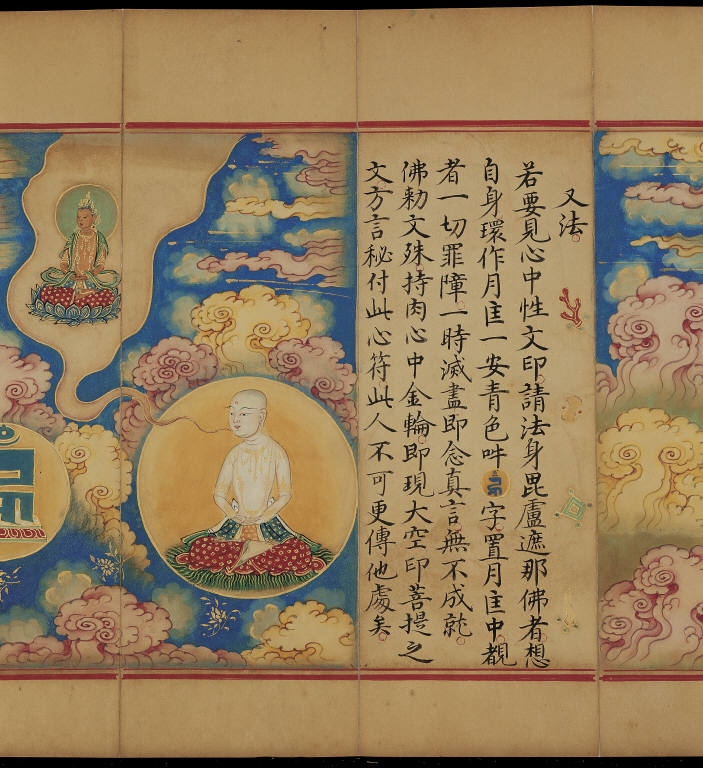 又法
若要見心中性文印請法身毘盧遮那佛者想
自身環作月𡈼一安青色吽字置月𡈼中觀
者一切罪障一時滅盡即念真言無不成就
佛勑文殊持肉心中金輪即現大空印菩提之
文方言秘付此心符此人不可更傳他處矣